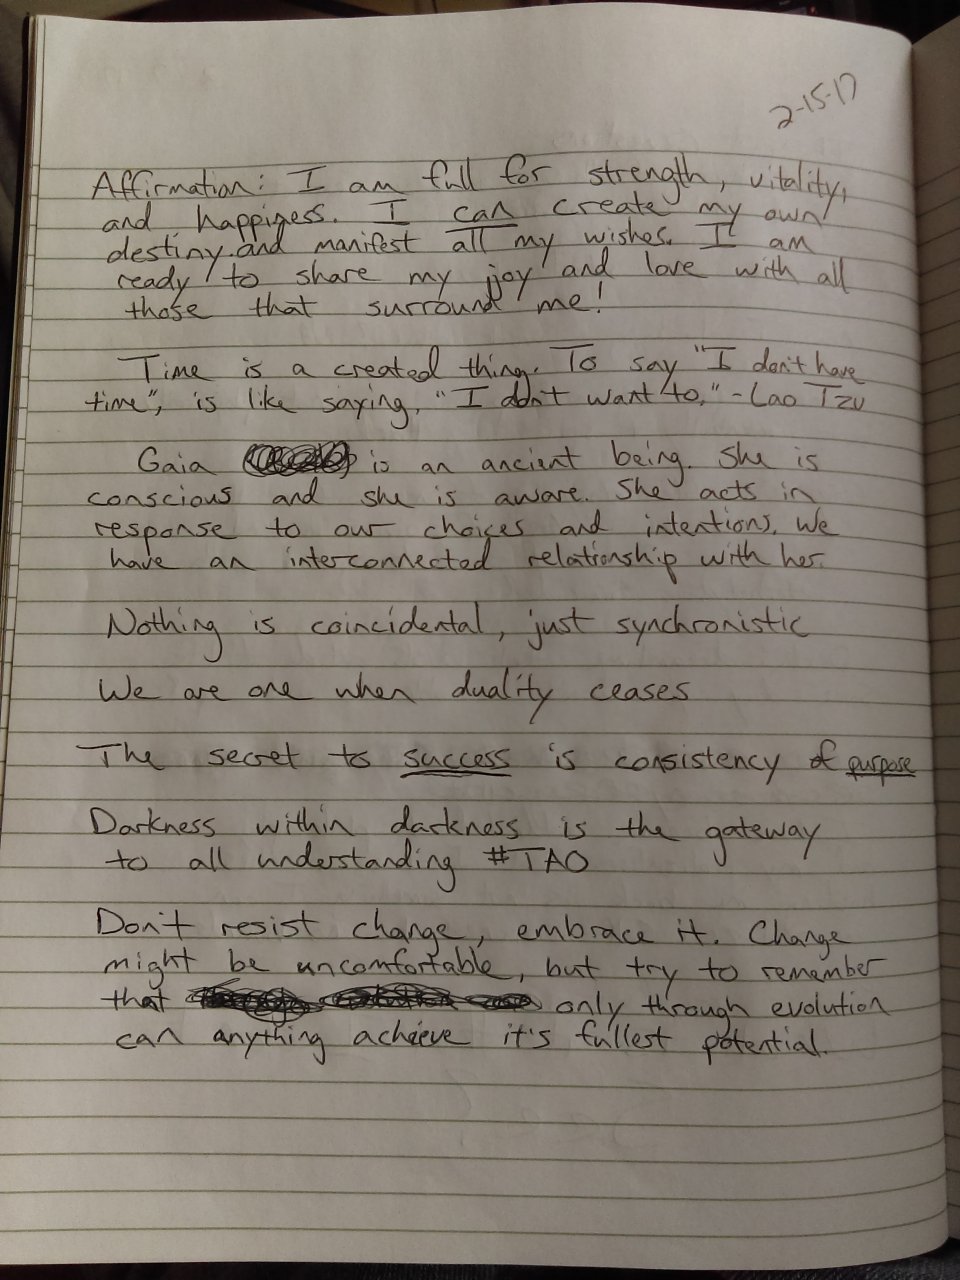 2-15-17
Affirmation: I am full for strength, vitality,
and happiness. I can create my own
destiny and manifest all my wishes. I am
ready to share my joy and love with all
those that surround me!
Time is a created thing. To say "I don't have
time", is like saying, "I don't want to." - Lao Tzu
Gaia is an ancient being. She is
conscious and she is aware. She acts in
response to our choices and intentions. We
have an interconnected relationship with her.
Nothing is coincidental, just synchronistic
We are one when duality ceases
The secret to success is consistency of purpose
Darkness within darkness is the gateway
to all understanding #TAO
Don't resist change, embrace it. Change
might be uncomfortable, but try to remember
that only through evolution
can anything achieve it's fullest potential.